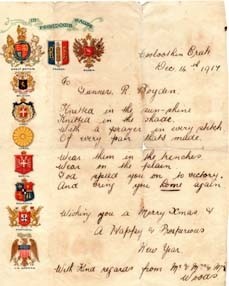 IN FREEDOM'S CAUSE
GREAT BRITAIN
FRANCE
RUSSIA
Dec. 14th 1917
To
Gunner R. Boyden.
Knitted in the sun-shine
Knitted in the shade.
With a prayer in every stitch
Of every pair that's made.
Wear them in the trenches
Wear on the plain
God speed you on to victory.
And bring you home again
Wishing you a Merry Xmas &
A Happy & Prosperous
New Year.
With Kind regards from Mr & Mrs
Woods
PORTUGAL